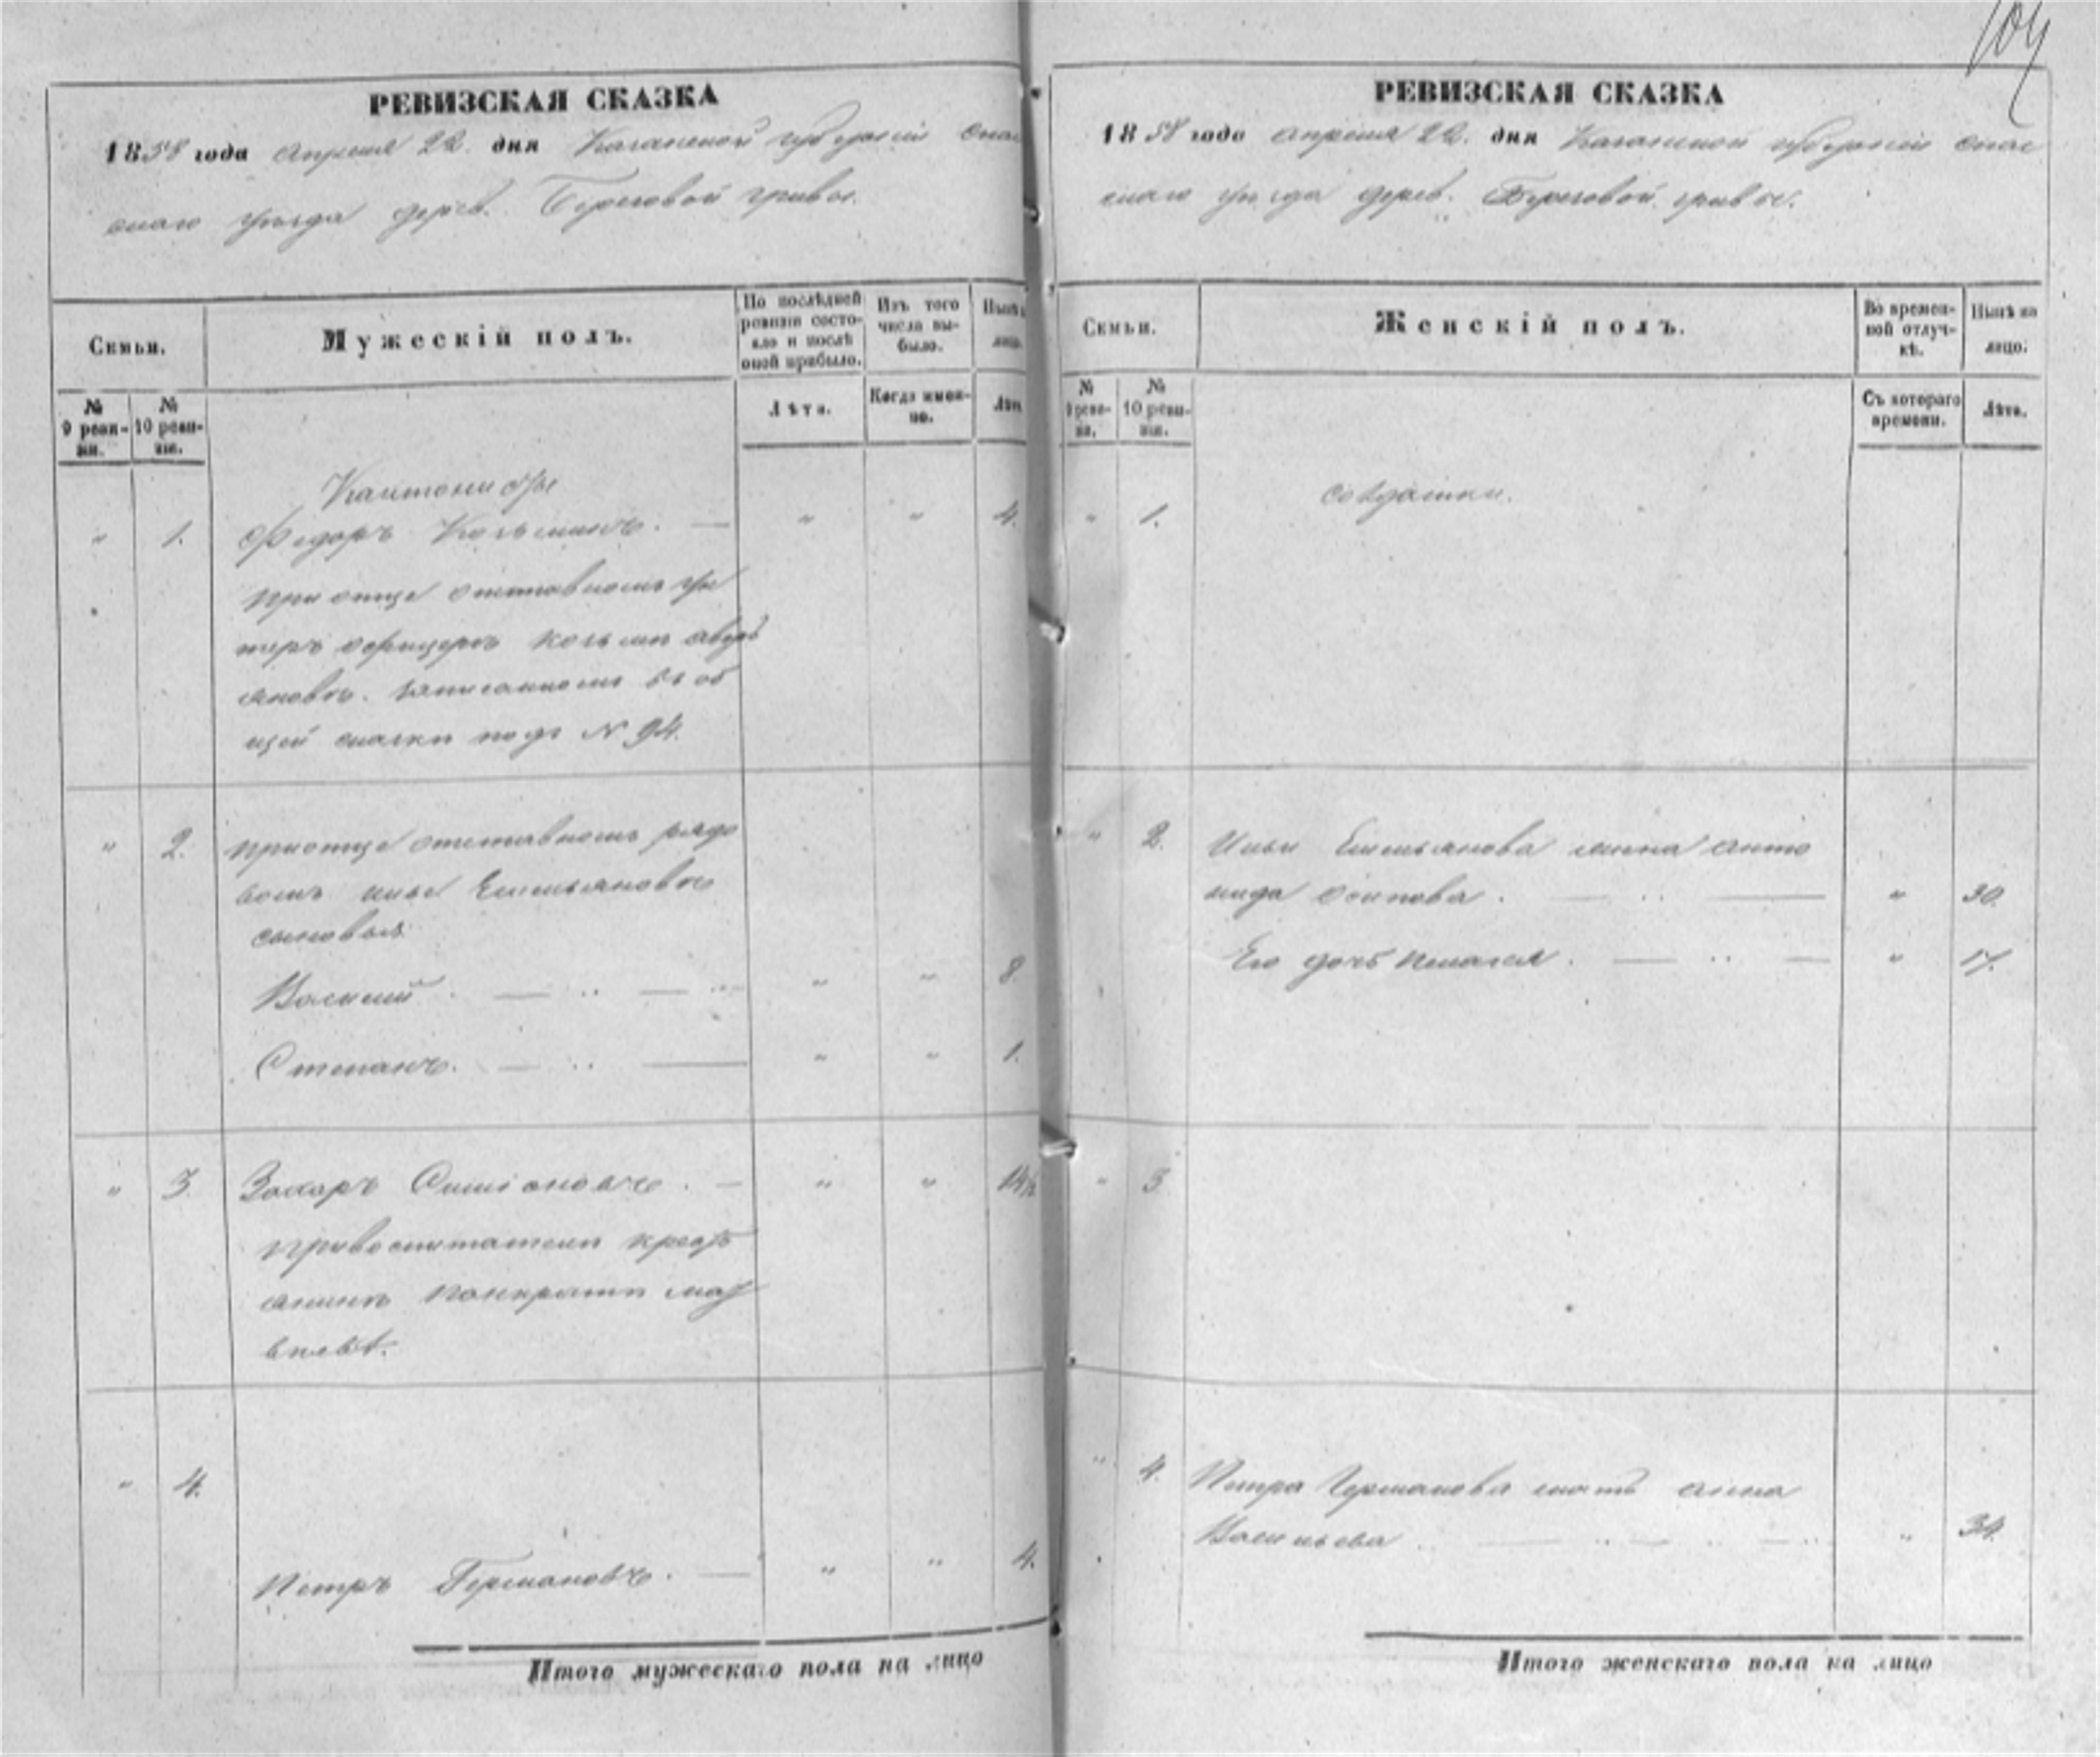 104
РЕВИЗСКАЯ СКАЗКА
1858 года Апреля 22. дня Казанской губернии Спас
скаго уѣзда дерев. Береговой гривы.
Семьи.
Мужескій полъ.
По послѣдней ревизіи состояло и послѣ оной прибыло.
Изъ того числа выбыло.
Нынѣ
лицо.
№ 9 ревизіи.
№ 10 ревизіи.
Лѣта.
Когда именно.
Лѣта
Кантонисты
" 1. Федоръ Козьминъ. — " " 4.
при отце отставномъ ун
теръ офицерѣ Козьмѣ
яновѣ. записанномъ въ об
щей сказкѣ подъ N 94.
" 2. при отце отставномъ рядо
вомъ Ильѣ Емельяновѣ
сыновья
Василий . — .. — " " 8.
Степанъ. — .. — " " 1.
" 3. Захаръ Симіоновъ . — " " 14½
при воспитателѣ крестъ
янинѣ Панкратѣ Мат
вѣевѣ.
" 4.
Петръ Германовъ. — " " 4.
Итого мужескаго пола на лицо
РЕВИЗСКАЯ СКАЗКА
1858 года Апреля 22. дня Казанской губернии Спас
скаго уѣзда дерев. Береговой гривы.
Семьи.
Женскій полъ.
Во временной отлучкѣ.
Нынѣ на лицо.
№ 9 ревизіи.
№ 10 ревизіи.
Съ котораго времени.
Лѣта.
" 1. Солдатки.
" 2. Ильи Емельянова жена Анто
нида Осипова . — .. — " 30.
Его дочь Пелагея . — .. — " 17.
" 3
" 4. Петра Германова мать Анна
Васильева . — .. — " 34.
Итого женскаго пола на лицо